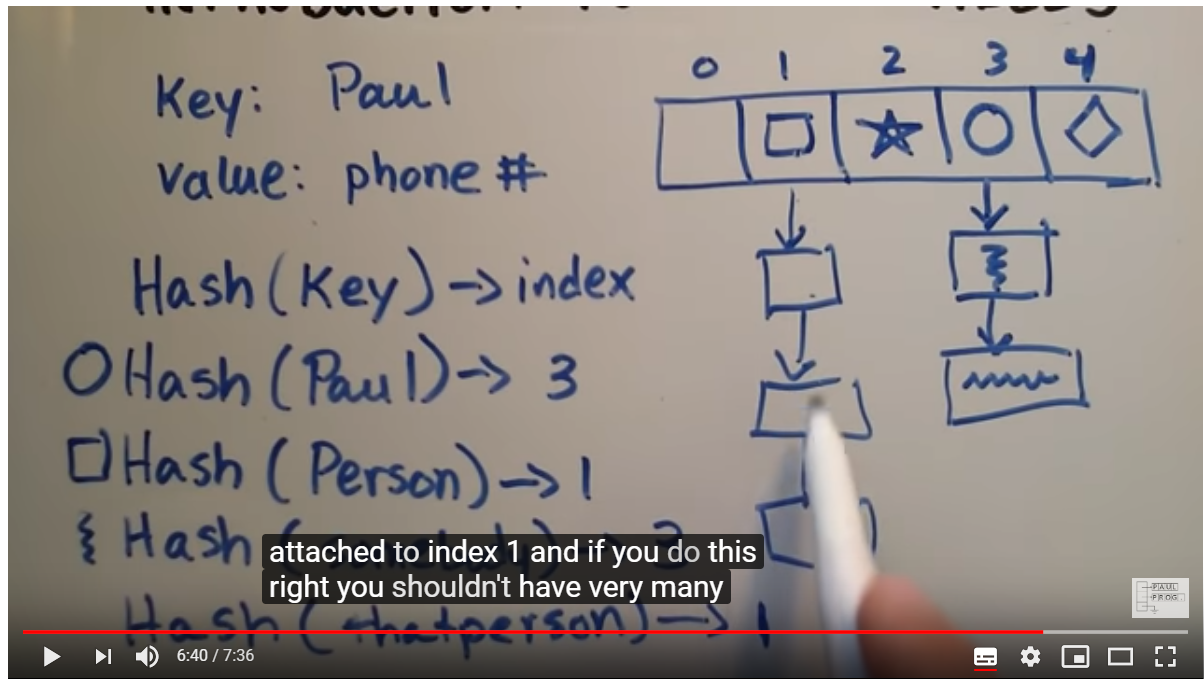 Key: Paul
value: phone #
0 1 2 3 4
Hash (Key) -> index
Hash (Paul) -> 3
Hash (Person) -> 1
Hash
Hash (thatperson) -> 1
attached to index 1 and if you do this
right you shouldn't have very many
PAUL
PROG
6:40 / 7:36